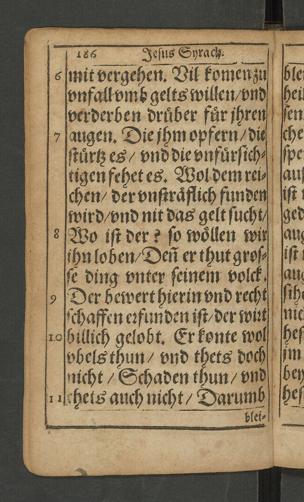 186 Jesus Syrach.
6 mit vergehen. Vil komen zu
vnfall vmb gelts willen/vnd
verderben drüber für ihren
7 augen. Die jhm opfern/die
stürtz es/ vnd die vnfürsich-
tigen fehet es. Wol dem rei-
chen/ der vnsträflich funden
wird/vnd nit das gelt sucht/
8 Wo ist der? so wöllen wir
ihn loben/Deñ er thut gros-
se ding vnter seinem volck.
9 Der bewert hierin vnd recht
schaffen erfunden ist/der wirt
10 billich gelobt. Er konte wol
vbels thun/ vnd thets doch
nicht/ Schaden thun/ vnd
11 thets auch nicht/ Darumb
blei-